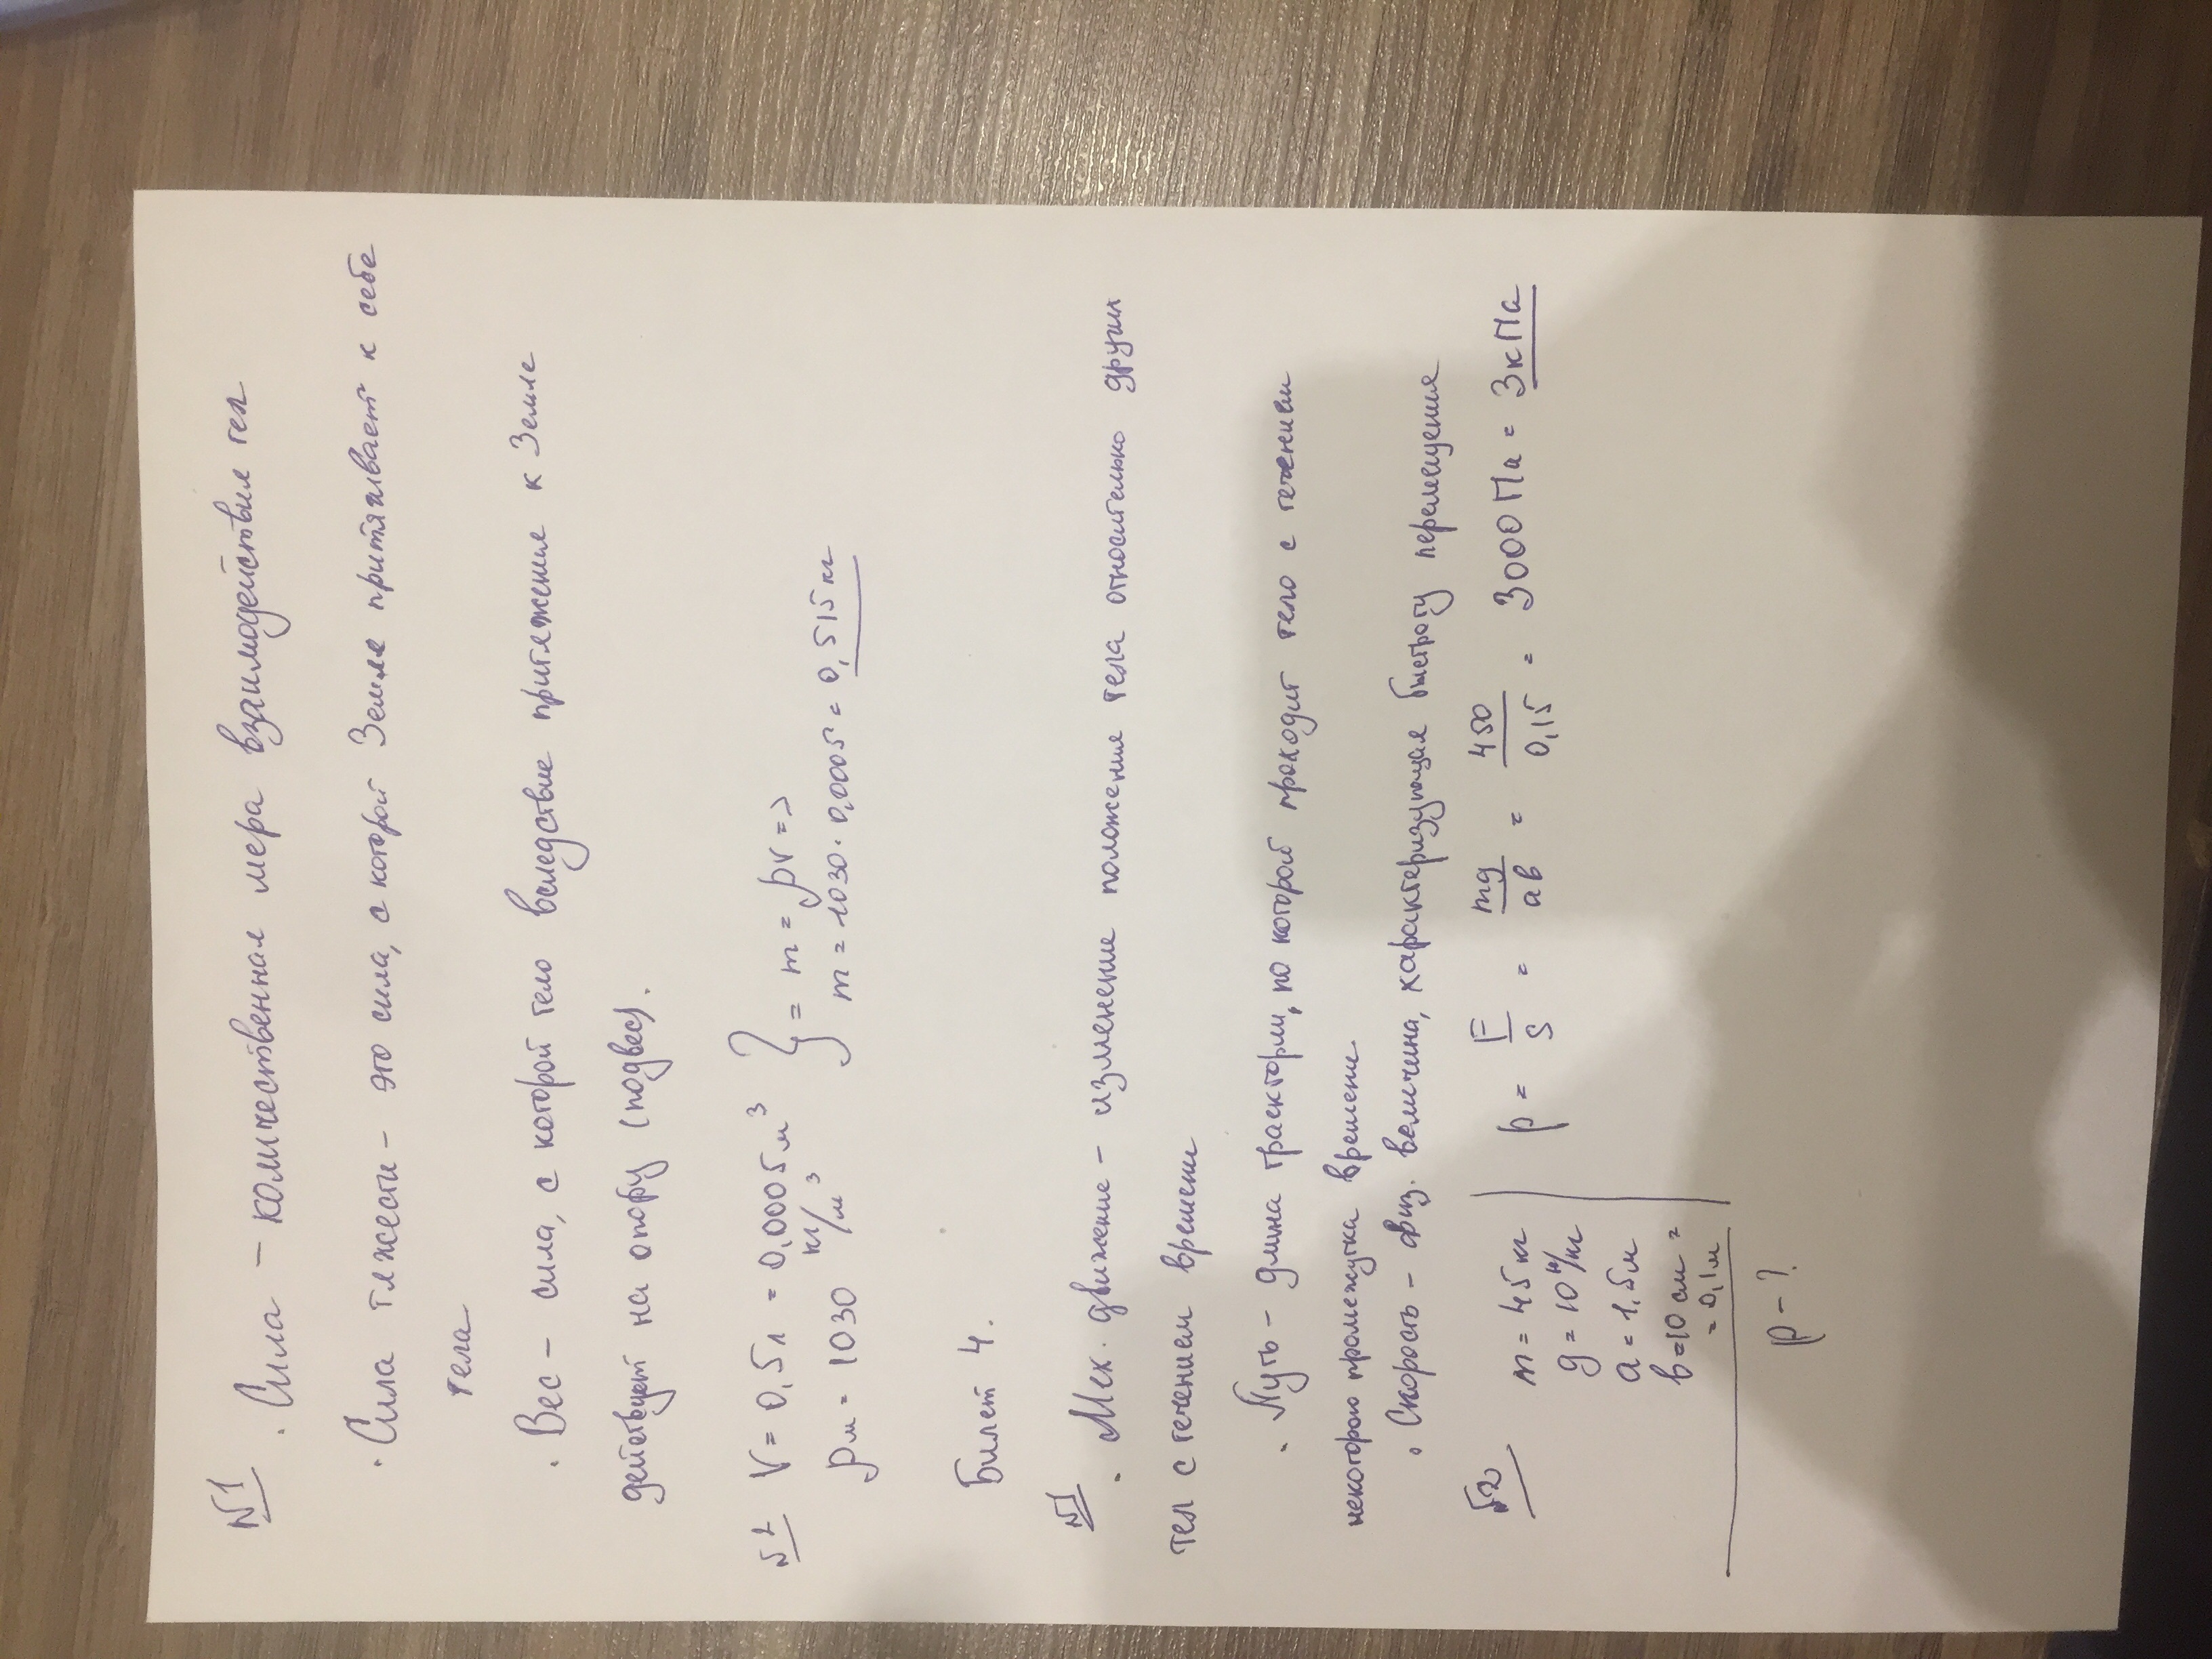 №1
· Сила – количественная мера взаимодействия тел
· Сила тяжести – это сила, с которой Земля притягивает к себе
тела
· Вес – сила, с которой тело вследствие притяжения к Земле
действует на опору (подвес).
№2 V = 0,5л = 0,0005м³ } = m = ρv =>
ρм = 1030 кг/м³ m = 1030 · 0,0005 = 0,515 кг
Билет 4.
№1
· Мех. движение – изменение положения тела относительно других
тел с течением времени
· Путь – длина траектории, по которой проходит тело с течением
некоторого промежутка времени.
· Скорость – физ. величина, характеризующая быстроту перемещения
№2
m = 45 кг p = F/S = mg/ab = 450/0,15 = 3000 Па = 3 кПа
g = 10 н/кг
a = 1,5м
b = 10 см =
= 0,1м
p – ?